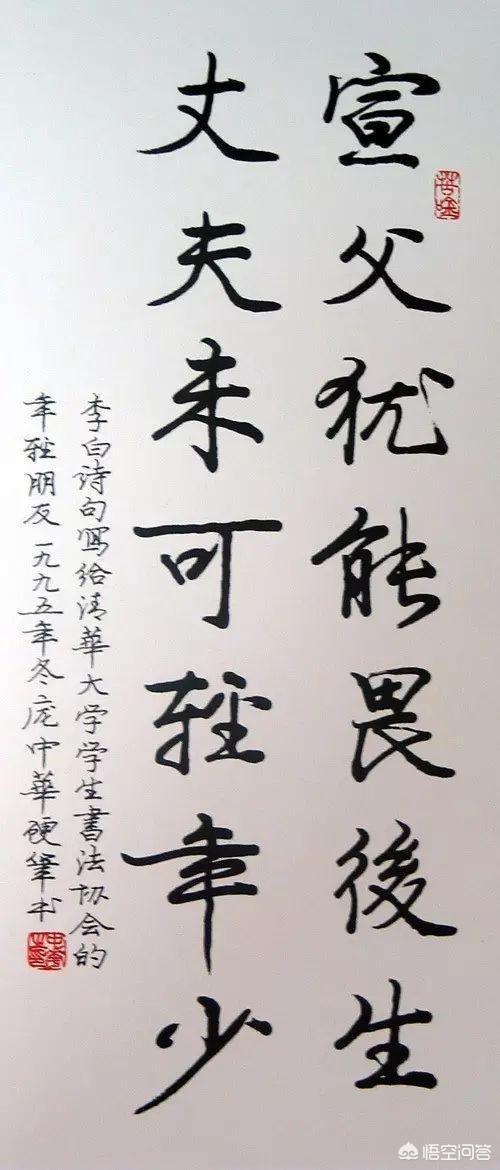 宣父犹能畏後生
丈夫未可轻年少
李白诗句寫给清華大学学生書法协会的
年轻朋友一九九五年冬庞中華硬筆书
悟空问答